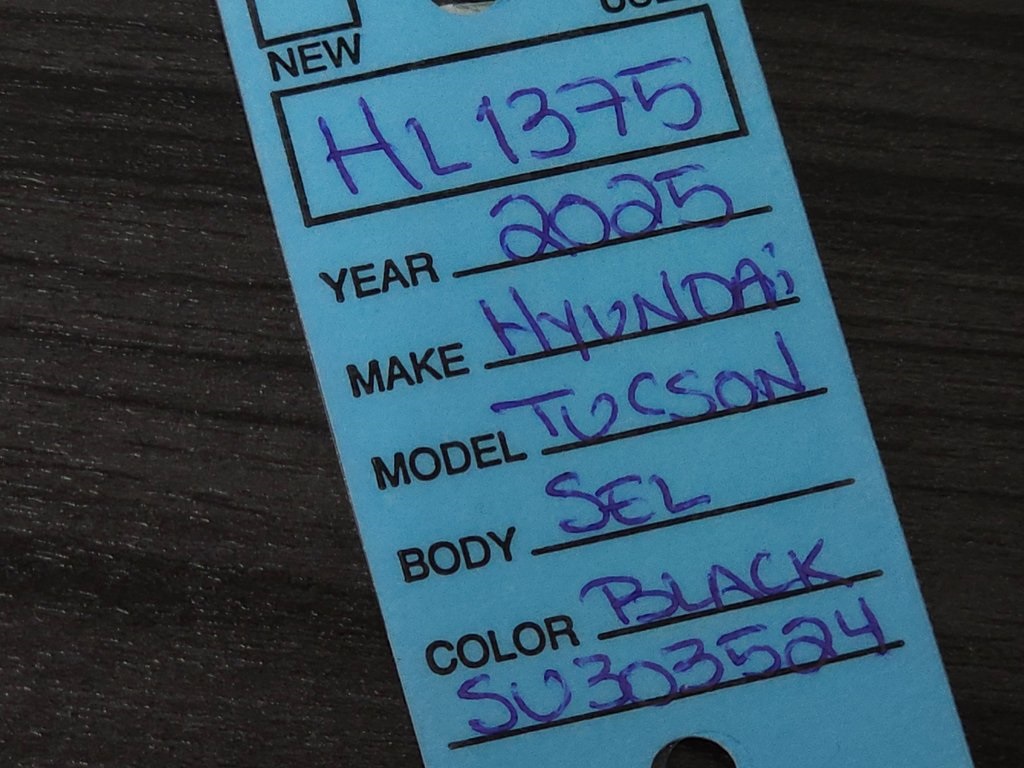 NEW
HL1375
YEAR 2025
MAKE HYUNDAi
MODEL TUCSON
BODY SEL
COLOR BLACK
SU303524